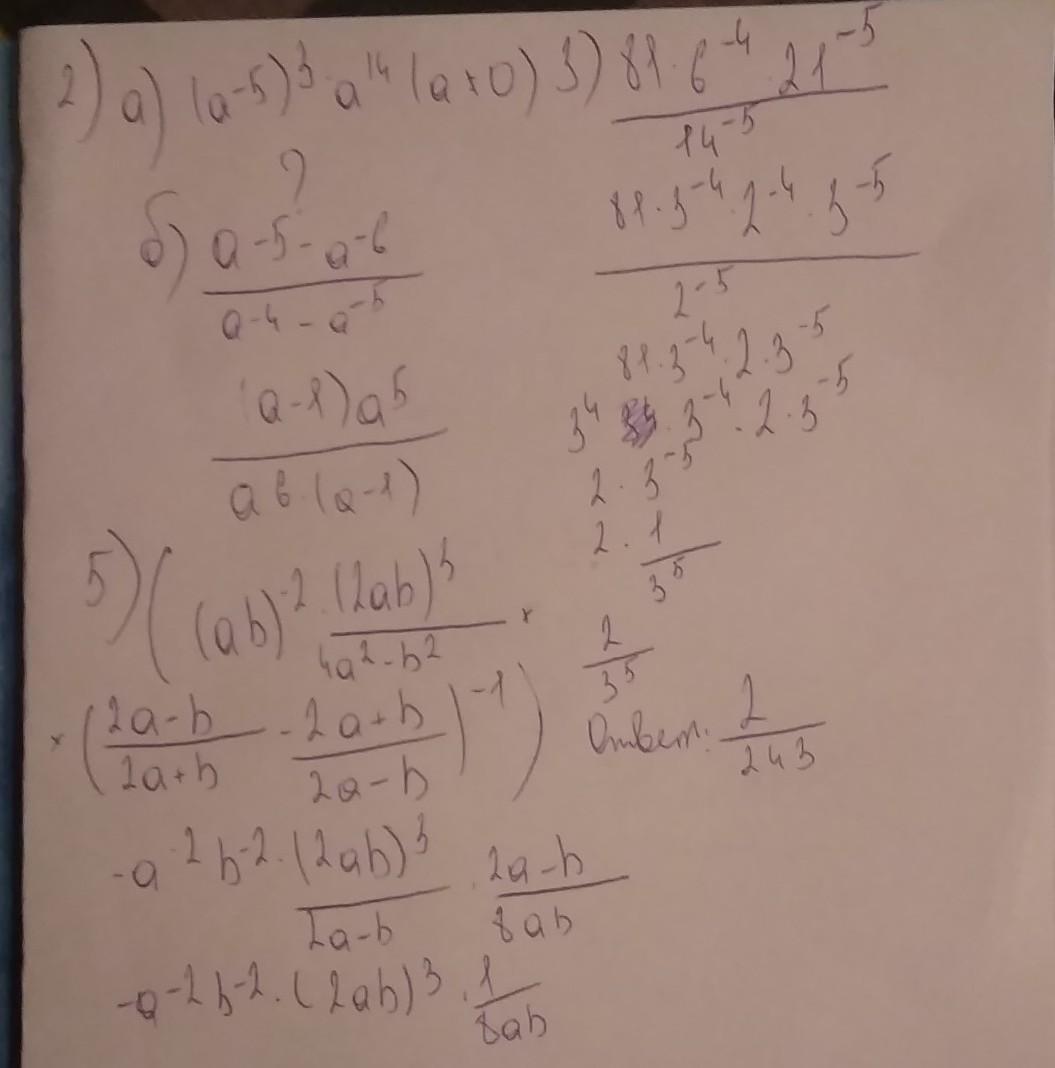 2) а) (a^-5)^3 · a^14 (a ≠ 0)
?
б) a^-5 - a^-6 / a^-4 - a^-5
(a-1)a^5 / a^6 · (a-1)
3) 81 · 6^-4 · 21^-5 / 14^-5
81 · 3^-4 · 2^-4 · 3^-5 / 2^-5
81 · 3^-4 · 2 · 3^-5
3^4 · 3^-4 · 2 · 3^-5
2 · 3^-5
2 · 1 / 3^5
2 / 3^5
Ответ: 2 / 243
5) ( (ab)^-2 · (2ab)^3 / 4a^2 - b^2 ×
× ( 2a-b / 2a+b - 2a+b / 2a-b )^-1 )
-a^-2 b^-2 · (2ab)^3 / 2a-b · 2a-b / 8ab
-a^-2 b^-2 · (2ab)^3 · 1 / 8ab